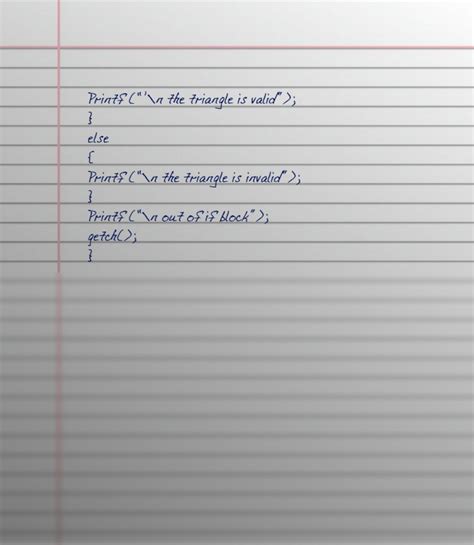 Printf ("'\n the triangle is valid");
}
else
{
Printf ("\n the triangle is invalid");
}
Printf ("\n out of if block");
getch();
}